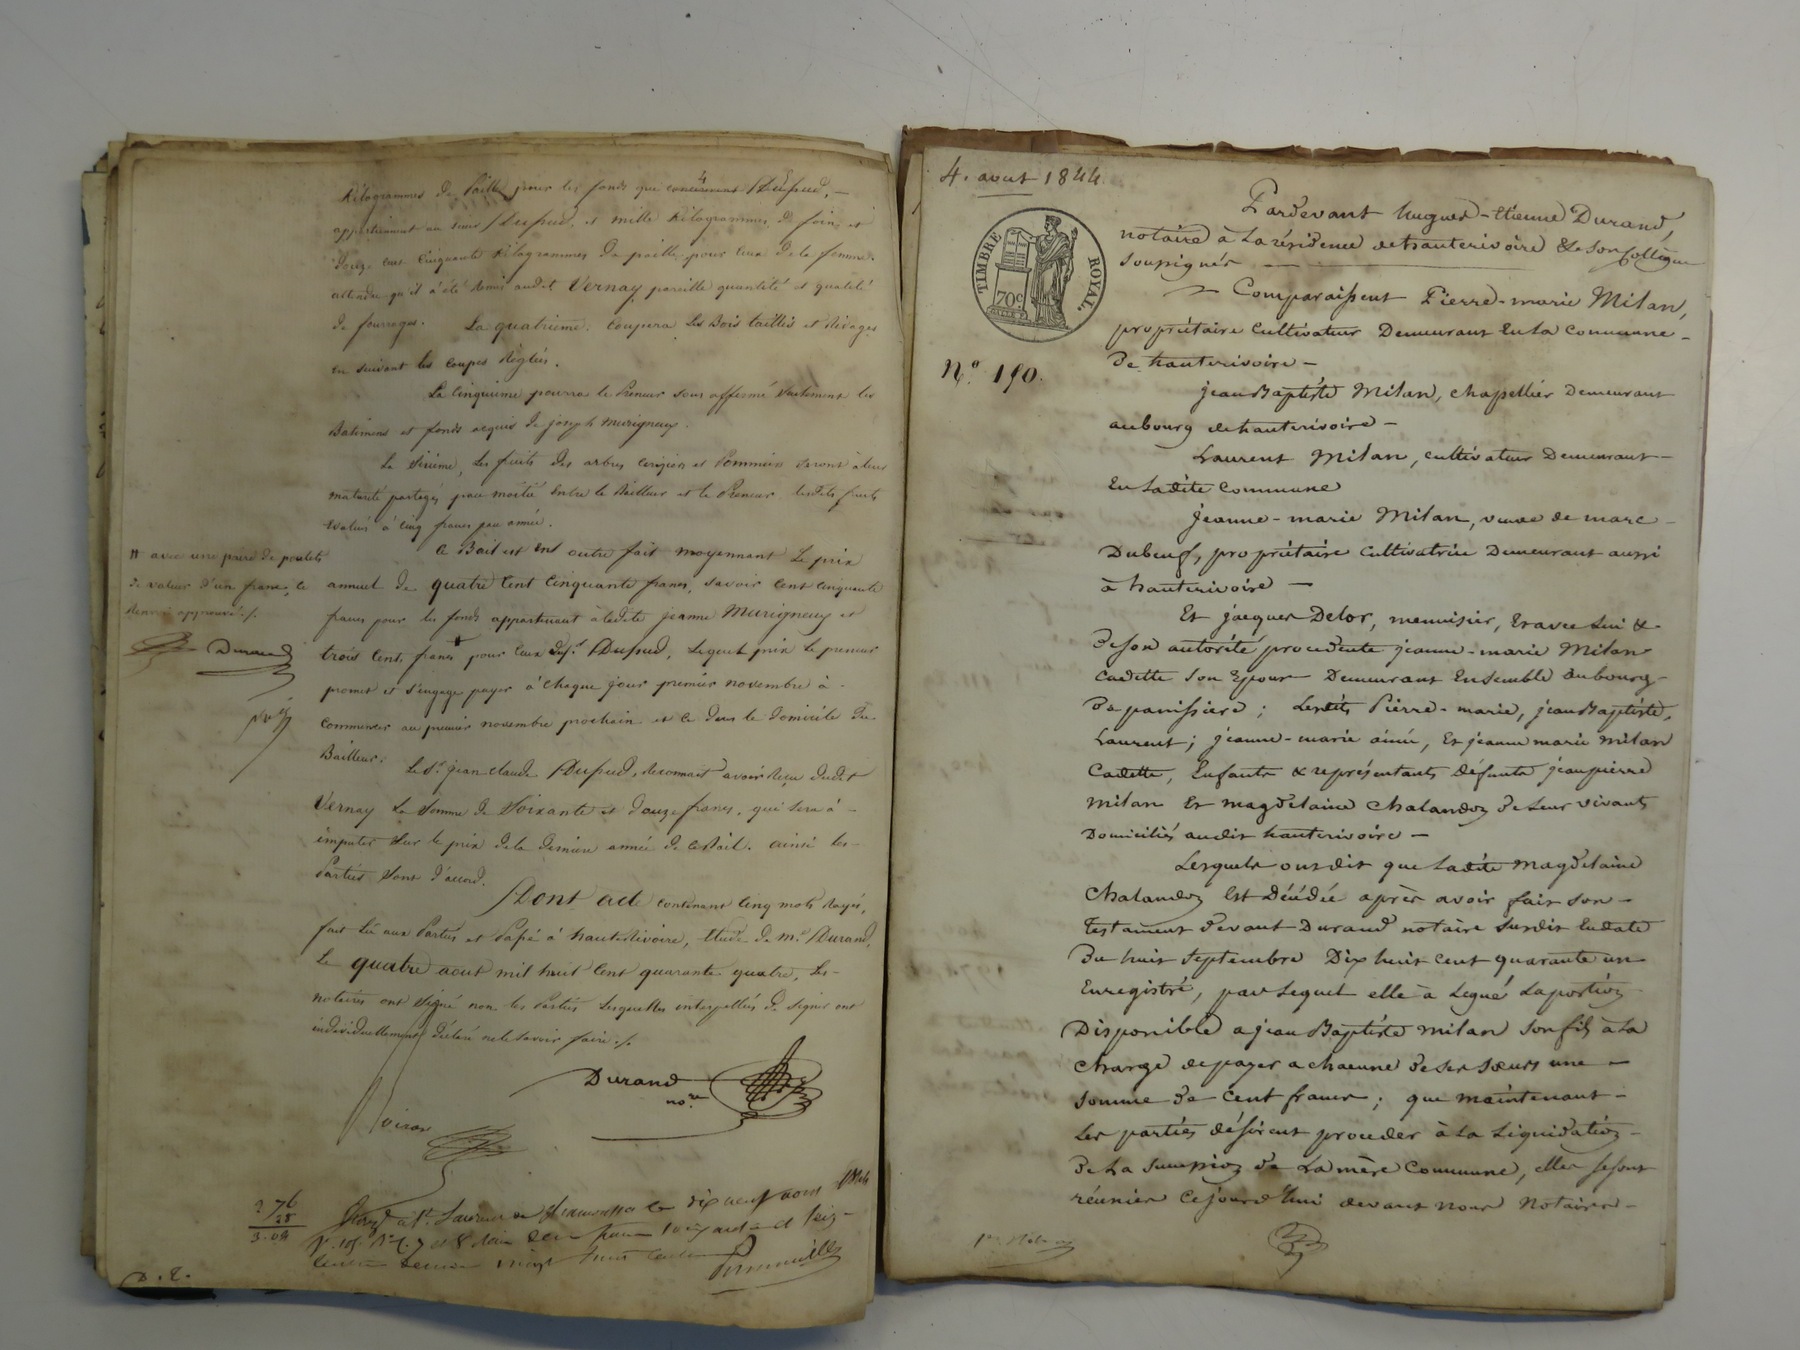 Kilogrammes de Paille pour les fonds que concernent Dupud, —
appartiennent au sieur Dupud, et mille Kilogrammes de foin et
deux cent cinquante Kilogrammes de paille pour ceux de la femme.
attendu qu'il a été remis audit Vernay pareille quantité et qualité
de fourrages. La quatrieme. coupera les Bois taillis et Rivages
en suivant les coupes Réglées.
La Cinquieme pourra le Preneur sous affermé seulement les
Batimens et fonds acquis de joseph Murigneux.
La Sixieme, les fruits des arbres Cerisiers et Pommiers seront à leur
maturité partagés par moitié Entre le Bailleur et le Preneur. lesdits fruits
évalués à Cinq francs par année.
Ce Bail est ens outre fait moyennant Le prix
annuel de quatre Cent Cinquante francs, savoir Cent Cinquante
francs pour les fonds appartenant à ladite jeanne Murigneux et
trois Cents francs pour Ceux dud. st Dupud, Lequel prix Le preneur
promet et s'engage payer à Chaque jour premier novembre à -
Commencer au premier novembre prochain et Ce dans le domicile du
Bailleur;
Le Sr. jean-claude Dupud, Reconnait avoir Reçu dudit
Vernay La Somme de Soixante et douze francs, qui sera à -
imputer sur le prix de la derniere année de Ce Bail. ainsi les -
Parties sont d'accord.
Dont acte contenant Cinq mots Rayés,
fait Lu aux Parties et Passé à hauterivoire, Etude de me. Durand,
Le quatre aout mil huit Cent quarante quatre, Les -
notaires ont signé non les Parties Lesquelles interpellées de signer ont
individuellement déclaré ne le savoir faire ./.
Durand
nore.
# avec une paire de poulets
de valeur d'un franc, ce
Renvoi approuvé ./.
Durand
2 76
28
3. 04
D. E.
4. aout 1844.
TIMBRE ROYAL.
70c
No. 190.
Pardevant hugues-Etienne Durand,
notaire à La résidence de hauterivoire & Son Collègue
soussignés —
Comparaissent Pierre-marie Milan,
propriétaire Cultivateur Demeurant En La Commune -
De hauterivoire —
jean Baptiste Milan, Chapellier Demeurant
au bourg de hauterivoire —
Laurent Milan, cultivateur Demeurant -
En Ladite Commune
jeanne-marie Milan, veuve de marc -
Dubeuf, propriétaire Cultivatrice Demeurant aussi
à hauterivoire —
Et jacques Delor, menuisier, Et avec Lui & -
De son autorité procédente jeanne-marie Milan
Cadette Son Epouse Demeurant Ensemble au bourg -
De panissiere ; Lesdits Pierre-marie, jean Baptiste,
Laurent ; jeanne-marie ainée, Et jeanne marie milan
Cadette, Enfants & représentants défunts jean pierre
milan Et magdelaine Chalandon de Leur vivants
Domiciliés audit hauterivoire —
Lesquels ont dit que Ladite magdelaine
Chalandon Est Décédée après avoir fait son -
testament devant Durand notaire Susdit En date
Du huit septembre Dix huit cent quarante un
Enregistré, par Lequel elle à Legué La portion
Disponible a jean Baptiste milan Son fils à La
Charge de payer a chacune de ses sœurs une —
Somme de Cent francs ; que maintenant -
Les parties désirent procéder à La Liquidation -
De La succession de La mère Commune, elles se sont
réunies Ce jourd'hui devant nous Notaires -